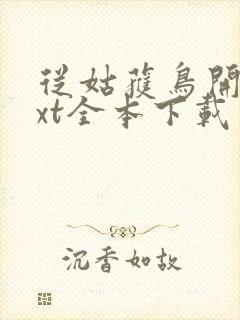 從姑蒦鳥開
xt全本下載
沉香如故